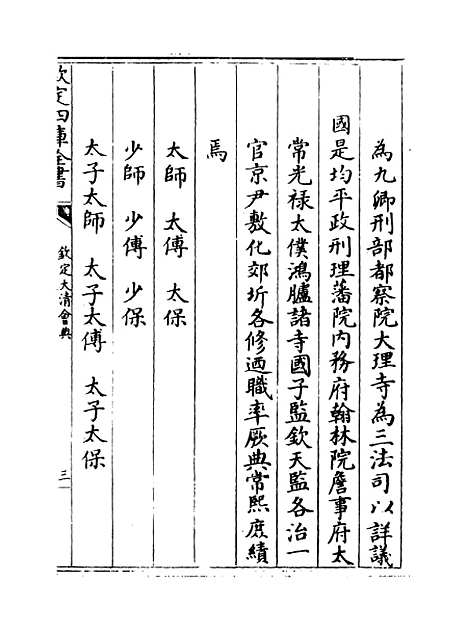 為九卿刑部都察院大理寺為三法司以詳議
國是均平政刑理藩院内務府翰林院詹事府太
常光禄太僕鴻臚諸寺國子監欽天監各治一
官京尹敷化郊圻各修迺職率厥典常熙庶績
焉
太師 太傅 太保
少師 少傅 少保
太子太師 太子太傅 太子太保
欽定四庫全書
欽定大清會典
三